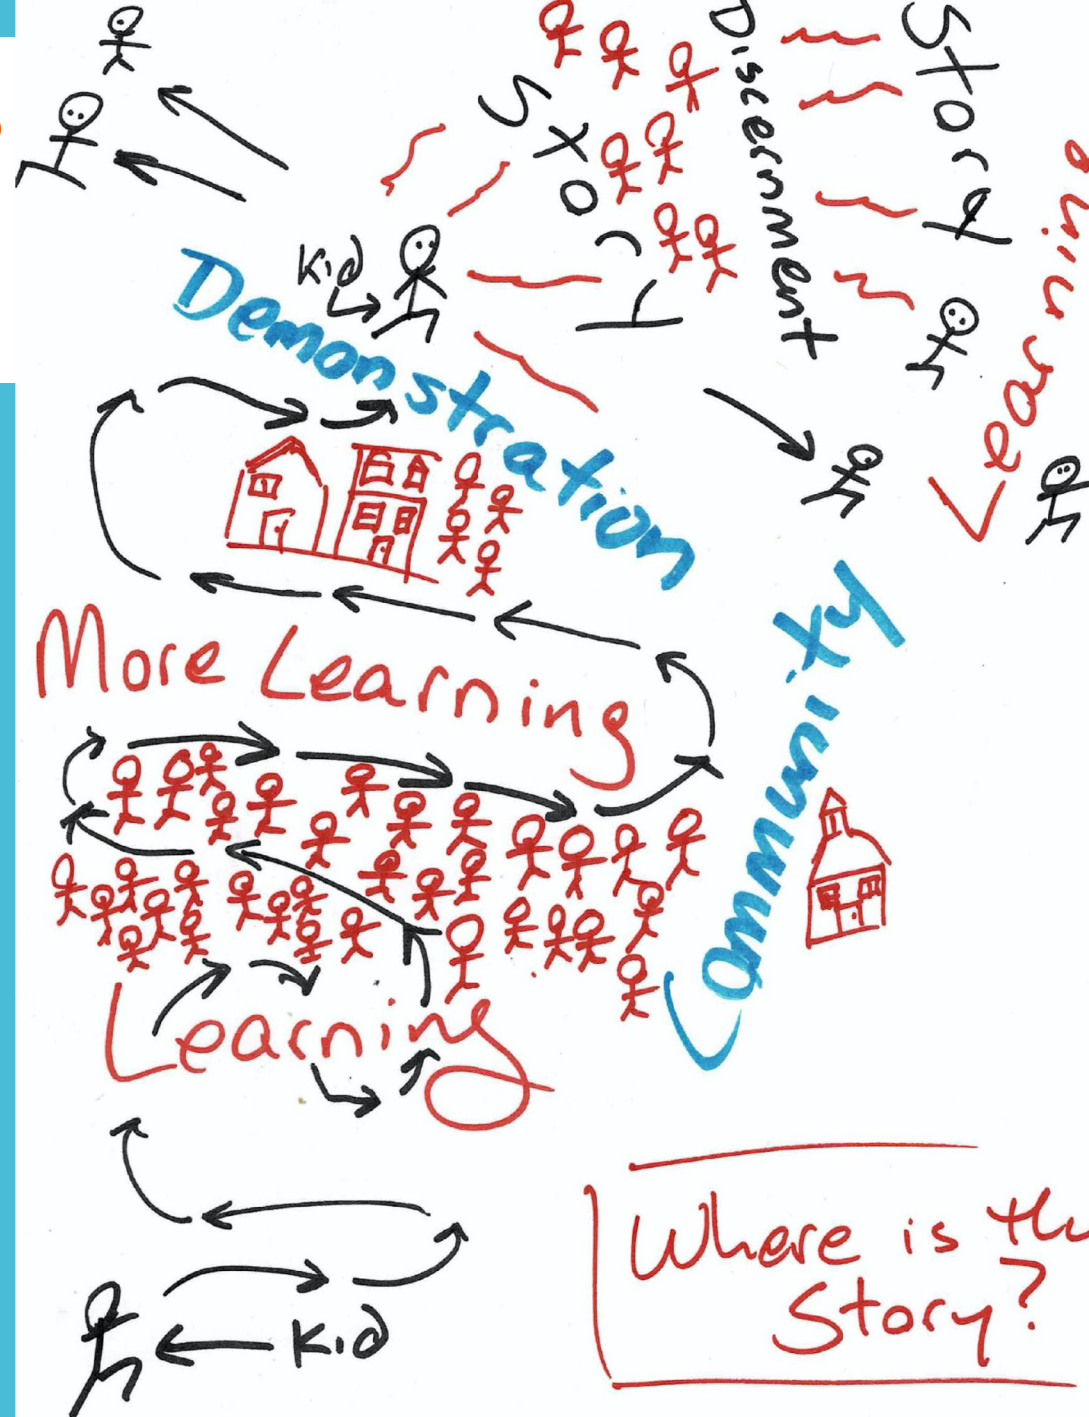 Story
Discernment
Story
Learning
Kid
Demonstration
More Learning
Community
Learning
Where is the
Story?
Kid